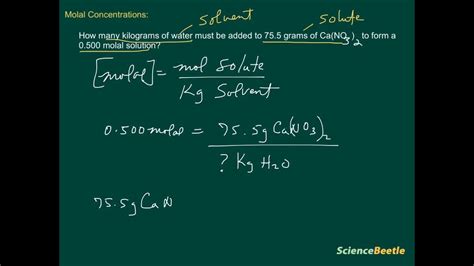 Molal Concentrations:
solvent
solute
How many kilograms of water must be added to 75.5 grams of Ca(NO3)2 to form a
0.500 molal solution?
[molal] = mol Solute
Kg Solvent
0.500 molal = 75.5g Ca(NO3)2
? Kg H2O
75.5g Ca N
ScienceBeetle